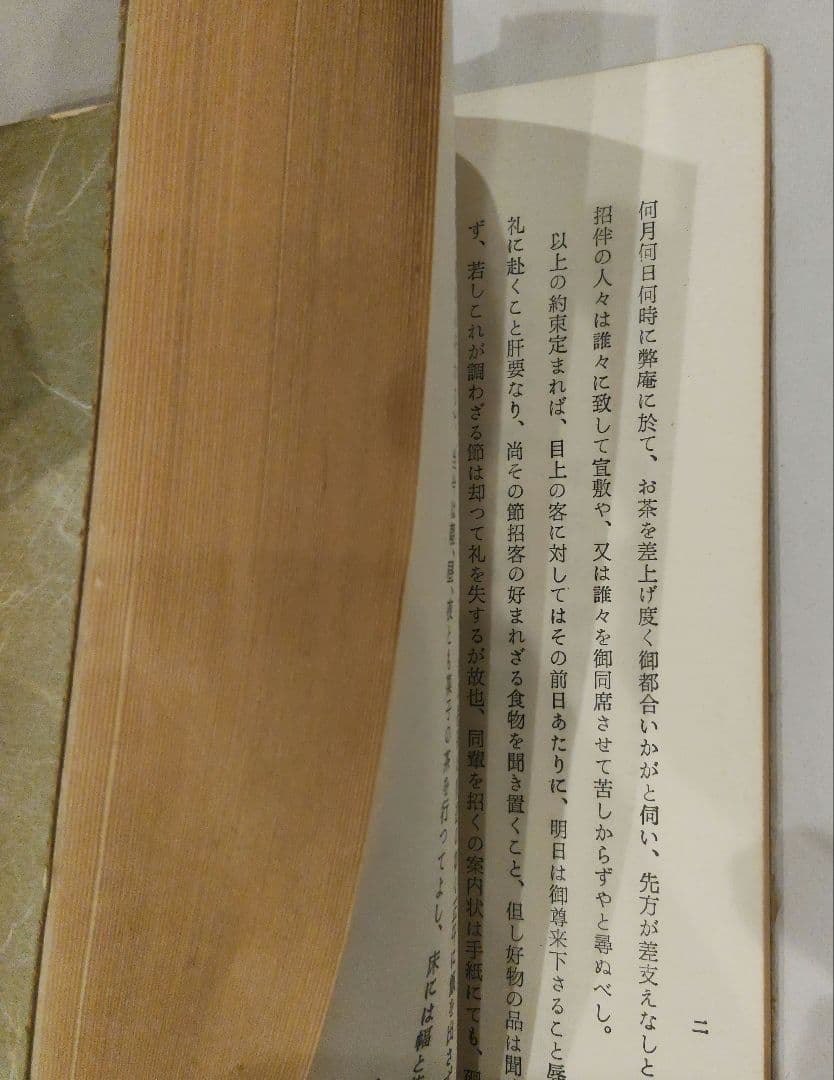 何月何日何時に弊庵に於て、お茶を差上げ度く御都合いかがと伺い、先方が差支えなしと
招伴の人々は誰々に致して宣敷や、又は誰々を御同席させて苦しからずやと尋ぬべし。
以上の約束定まれば、目上の客に対してはその前日あたりに、明日は御尊来下さること辱
礼に赴くこと肝要なり、尚その節招客の好まれざる食物を聞き置くこと、但し好物の品は聞
ず、若しこれが調わざる節は却つて礼を失するが故也、同輩を招くの案内状は手紙にても、廻
昼、夜とも菓子の茶を行つてよし、床には幅と
二